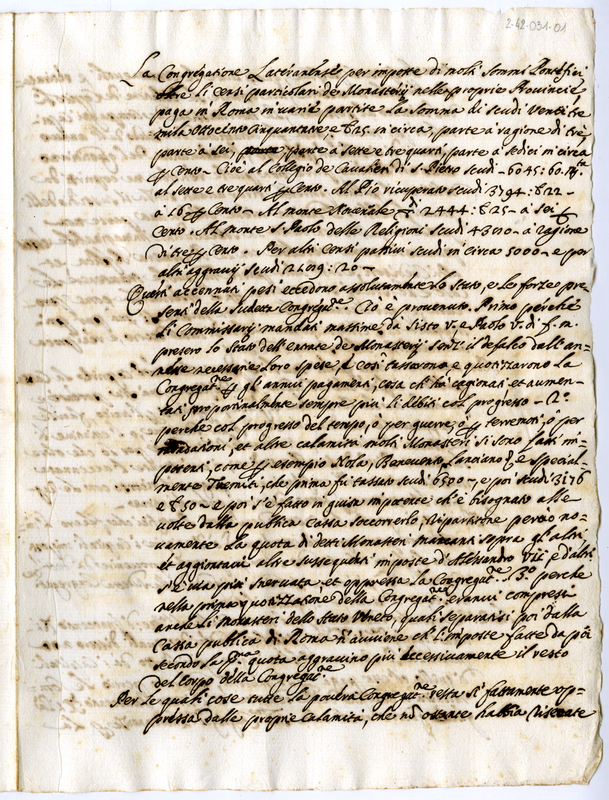 2-42-031-01
La Congregatione Lateranense per imposte di molti Sommi Pontefici
oltre li Censi particolari de Monasterij nelle proprie Provincie,
paga in Roma in varie partite la somma di scudi Venti tre
mila Ottocento Cinquantatre e b. 25 in circa, parte à ragione di tre
parte a sei, parte a sette e tre quarti, parte a sedici in circa
per Cento - Cioè al Collegio de Cavalieri di S. Pietro scudi - 6045: 60.
al sette e tre quarti per Cento. Al Pio ricuperato scudi 3794: b 22 -
à 16 per Cento - Al monte Novennale di 2444: b 25 - à sei per
Cento. Al monte S. Paolo delle Religioni scudi 4300 - a ragione
di tre per Cento. Per altri Censi passivi scudi in circa 5000 - e per
altri aggravij scudi 24019: 20 -
Questi accennati pesi eccedono assolutamente lo Stato, e le forze pre=
senti della sudetta Congregat.ne. Ciò è provenuto. Primo perchè
li Commissarij mandati massime da Sisto V. e Paolo V. di f. m.
presero lo Stato dell'entrate de Monasterij senz'il defalco dall'an=
nesse necessarie loro spese, e così tassarono e quotizzarono la
Congregat.ne per gli annui pagamenti, cosa ch'hà cagionati et aumen-
tati proportionalmente sempre più li debiti col progresso - 2.o
perchè col progresso del tempo, ò per guerre, ò per terremoti, ò per
inondationi, et altre calamità molti Monasteri si sono fatti im=
potenti, come per esempio Nola, Benevento, Lanciano e special=
mente Tremiti, che prima fù tassato scudi 6300 - e poi scudi 3176
e b 50 - e poi s'è fatto in guisa impotente ch'è bisognato alle
volte dalla publica Cassa soccorrerlo, Ripartitone perciò no=
vamente la quota di detti Monasteri mancanti sopra gl'altri,
et aggiontavi altre sussequenti imposte d'Alessandro VII e d'altri
s'è via più snervata et oppressa la Congregat.ne. 3.o perchè
nella prima quotizzatione della Congregat.ne eranvi compresi
anche li Monasteri dello Stato Veneto, quali separatisi poi dalla
Cassa publica di Roma n'avviene che l'imposte fatte da poi
secondo la p.ma quota aggravino più eccessivamente il resto
del corpo della Congregat.ne
Per le quali cose tutte la povera Congregat.ne resta sì fattamente op=
pressa dalle proprie Calamità, che nõ ostante habbia